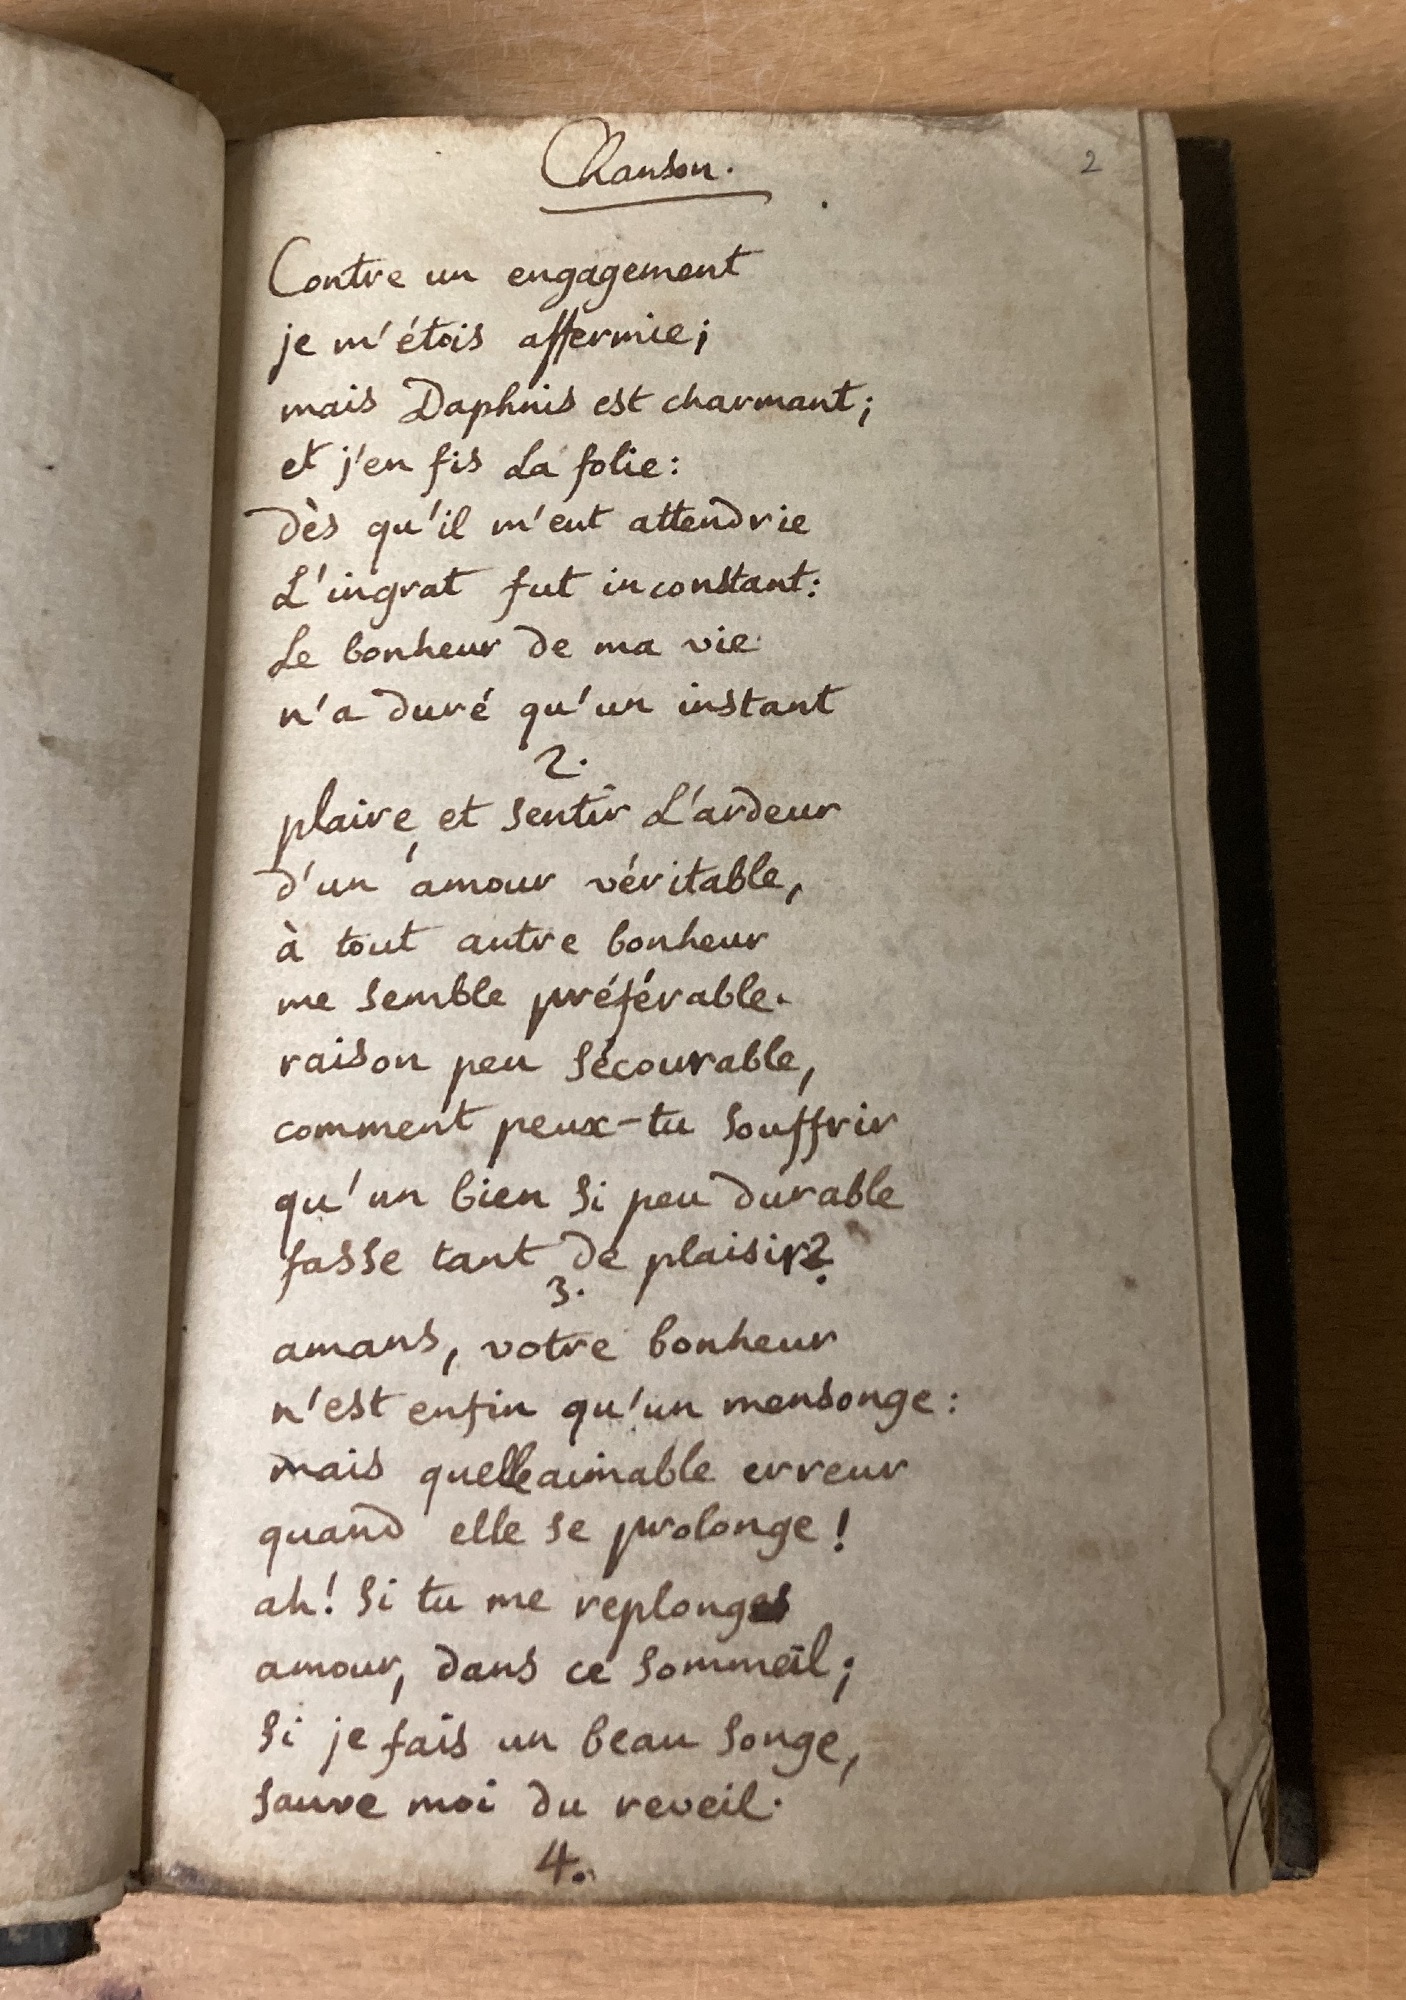 Chanson.
2
Contre un engagement
je m'étois affermie;
mais Daphnis est charmant;
et j'en fis la folie:
dès qu'il m'eut attendrie
L'ingrat fut inconstant:
Le bonheur de ma vie
n'a duré qu'un instant
2.
plaire, et sentir L'ardeur
d'un amour véritable,
à tout autre bonheur
me semble préférable.
raison peu sécourable,
comment peux-tu souffrir
qu'un bien si peu durable
fasse tant de plaisir?
3.
amans, votre bonheur
n'est enfin qu'un mensonge:
mais quelle aimable erreur
quand elle se prolonge!
ah! si tu me replonges
amour, dans ce sommeil;
si je fais un beau songe,
sauve moi du reveil.
4.